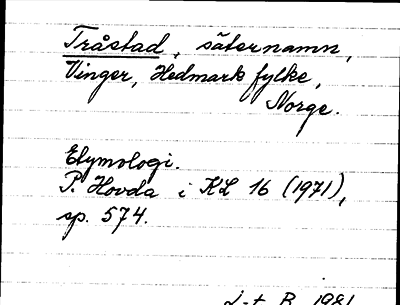 Tråstad, säternamn,
Vinger, Hedmark fylke,
Norge.
Etymologi.
P. Hovda i KL 16 (1971),
sp. 574.
B. 1981